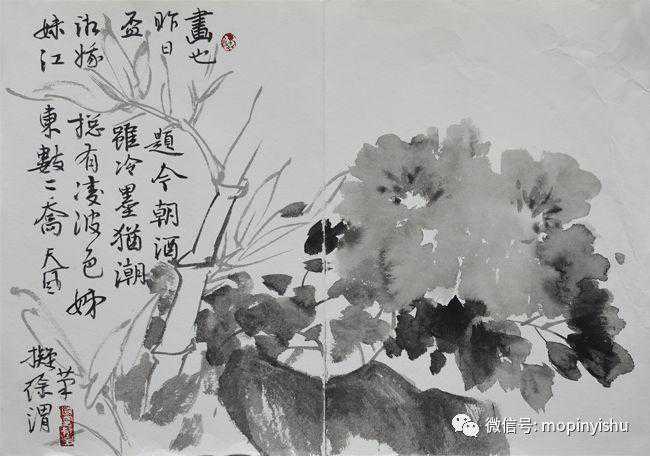 畫也
昨日題今朝酒
盃雖冷墨猶潮
湘娥捴有凌波色姊
妹江東數二喬
擬徐渭
微信号: mopinyishu